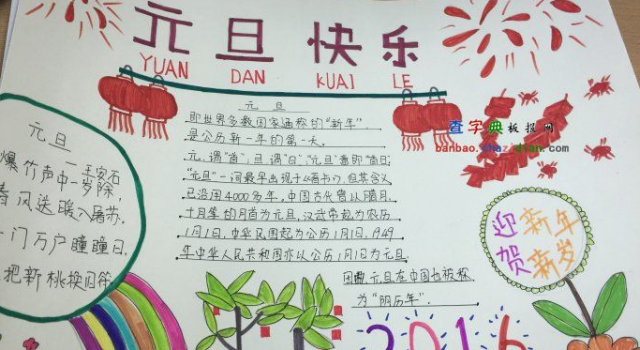 元旦快乐
YUAN DAN KUAI LE
元旦
即世界多数国家通称的"新年"
是公历新一年的第一天。
元,谓"首",旦,谓"日","元旦"意即"首日
"元旦"一词最早出现于《晋书》,但其含义
已沿用4000多年,中国古代曾以腊月、
十月等的月首为元旦,汉武帝起为农历
1月1日,中华民国起为公历1月1日,1949
年中华人民共和国亦以公历1月1日为元旦,
因此元旦在中国也被称
为"阴历年".
元旦
王安石
爆竹声中一岁除
春风送暖入屠苏.
门万户瞳瞳日.
把新桃换旧符
查字典板报网
banbao.chazidian.com
迎新年
贺新岁
2016